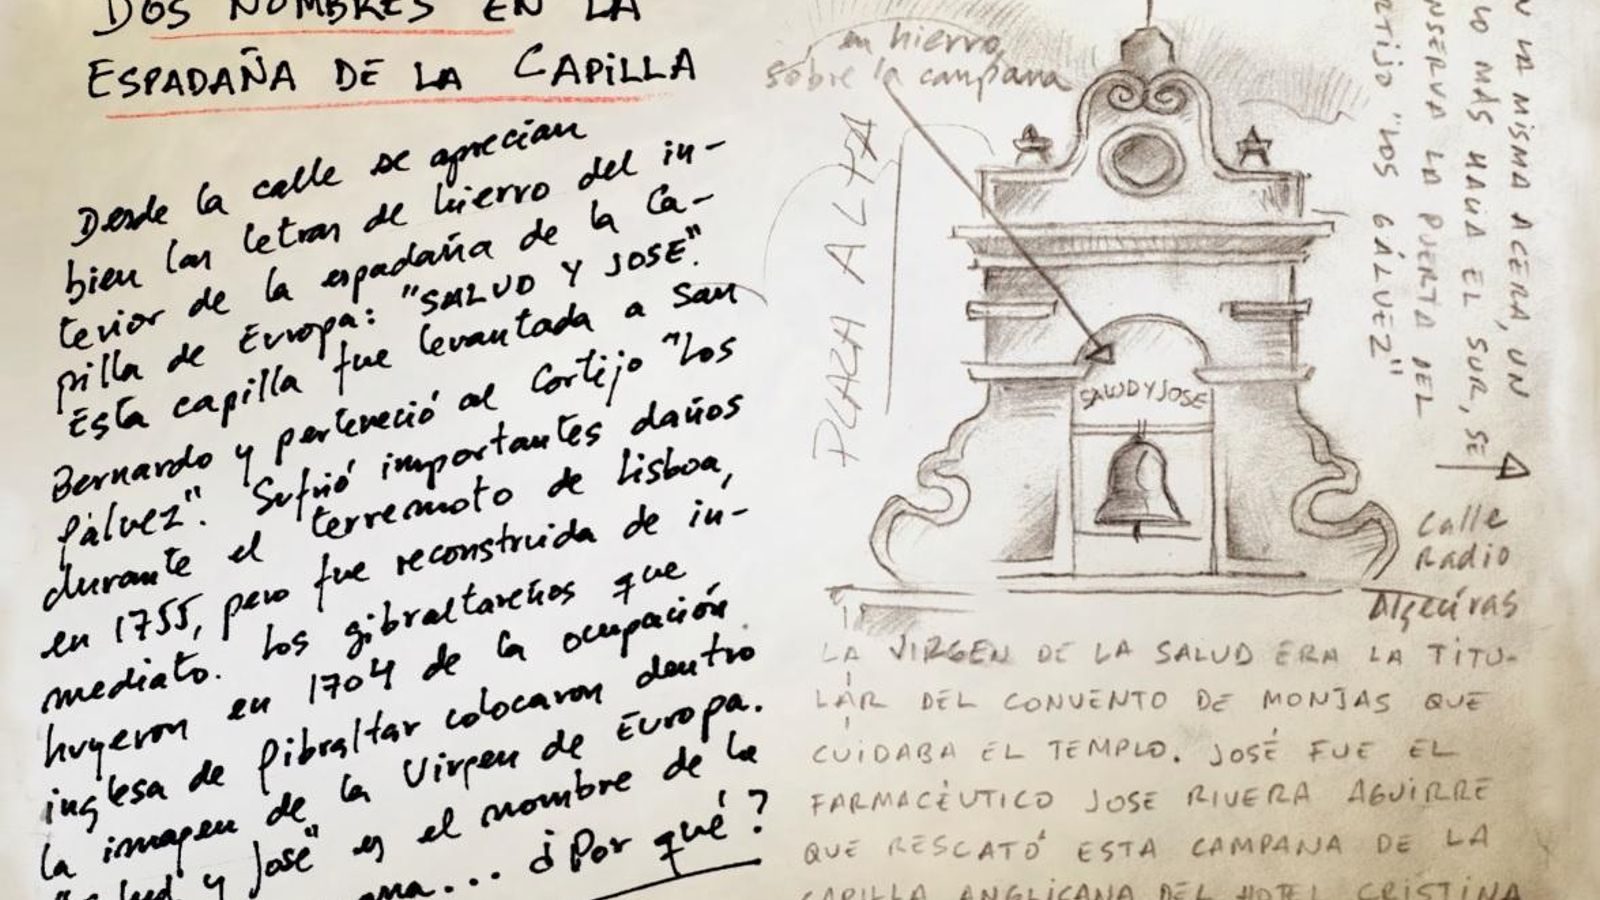 DOS NOMBRES EN LA
ESPADAÑA DE LA CAPILLA
Desde la calle se aprecian
bien las letras de hierro del in-
terior de la espadaña de la Ca-
pilla de Europa: "SALUD Y JOSE".
Esta capilla fue levantada a San
Bernardo y perteneció al Cortijo "Los
Gálvez". Sufrió importantes daños
durante el terremoto de Lisboa,
en 1755, pero fue reconstruida de in-
mediato. Los gibraltareños que
huyeron en 1704 de la ocupación
inglesa de Gibraltar colocaron dentro
la imagen de la Virgen de Europa.
y José" es el nombre de la
... ¿Por qué?
en hierro,
sobre la campana
PLAZA ALTA
SALUD Y JOSE
LA MISMA ACERA, UN
MÁS HACIA EL SUR, SE
LA PUERTA DEL
"LOS GÁLVEZ"
Calle
Radio
Algeciras
LA VIRGEN DE LA SALUD ERA LA TITU-
LAR DEL CONVENTO DE MONJAS QUE
CUIDABA EL TEMPLO. JOSÉ FUE EL
FARMACÉUTICO JOSE RIVERA AGUIRRE
QUE RESCATÓ ESTA CAMPANA DE LA
CAPILLA ANGLICANA DEL HOTEL CRISTINA